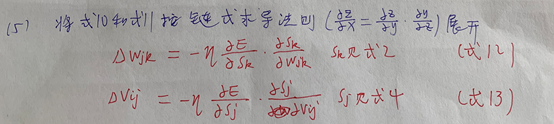 (5) 将式10和式11按链式求导法则 (∂z/∂x = ∂z/∂y · ∂y/∂z) 展开
ΔWjk = -η ∂E/∂Sk · ∂Sk/∂Wjk Sk见式2 (式12)
ΔVij = -η ∂E/∂Sj · ∂Sj/∂Vij Sj见式4 (式13)